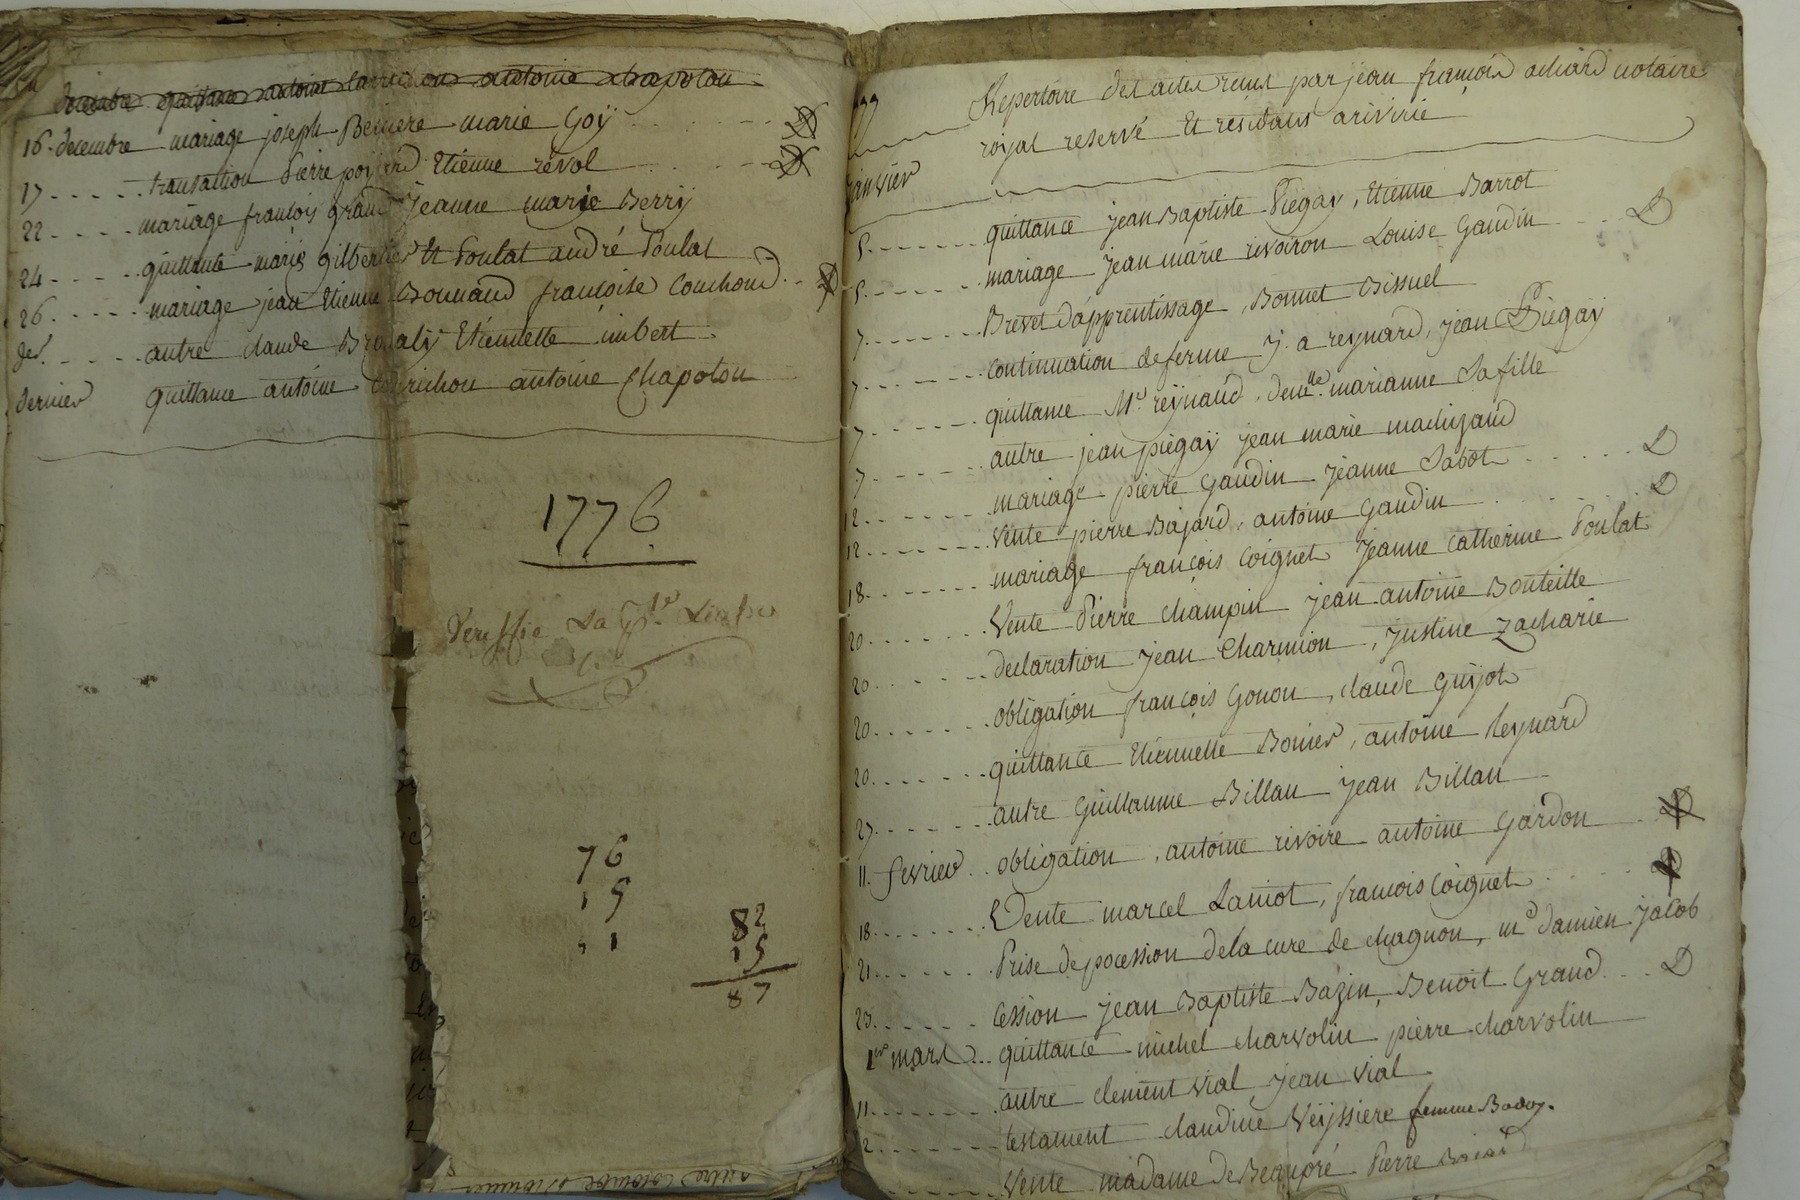 decembre quittance antoine antoine chapolou
16. decembre mariage joseph Beniere marie Goÿ
17 transaction Pierre Etienne revol
22 mariage françois grand Jeanne marie Berrÿ
24 quittance marie et Poulat andré Poulat
26 mariage jean Etienne Bonnard françoise Couchoud
der. autre claude Etiennette imbert
dernier quittance antoine antoine Chapolou
1776
Veriffié
76
15
11
82
15
87
Repertoire des actes reçus par jean françois achard notaire
royal reservé et residant a rivirie
janvier
5 quittance jean Baptiste Piegay, Etienne Barrot
5 mariage jean marie rivoiron Louise Gaudin D
7 Brevet d'apprentissage, Bonnet Bissuel
7 continuation de ferme j. a reynard, jean Piegaÿ
7 quittance Mr. reÿnard, demlle. marianne sa fille
7 autre jean piegaÿ jean marie machizaud
12 mariage pierre Gaudin jeanne Sabot D
12 Vente pierre Bajard, antoine Gaudin D
18 mariage françois Coignet Jeanne Catherine Poulat
20 Vente Pierre Champin jean antoine Bouteille
20 declaration jean Charmion, justine zacharie
20 obligation françois Gonon, claude Guijot
20 quittance Etiennette Bonier, antoine Reynard
27 autre Guillaume Billan jean Billan
11. fevrier obligation, antoine rivoire antoine Gardon
18 Vente marcel Lamot, françois Coignet
21 Prise de pocession de la cure de chagnon, md damien jacob
23 Cession jean Baptiste Bazin, Benoit Grand D
1er mars quittance michel charvolin pierre charvolin
11 autre clement vial jean vial
12 testament claudine Veÿssiere femme Badoy.
Vente madame de Beaupré Pierre Bajard